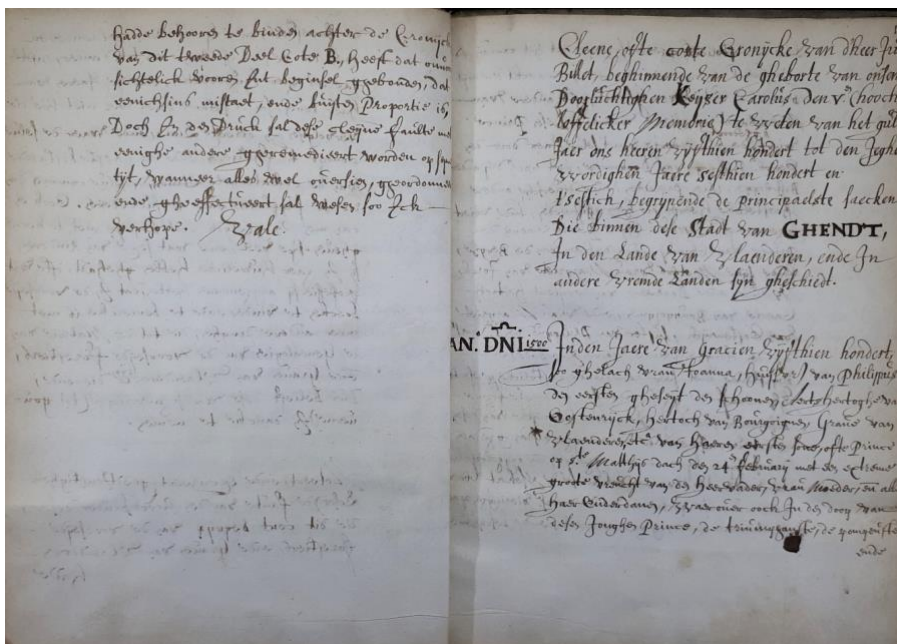 hadde behooren te binden achter de Cronijck
van dit tweede Deel Cote B, heeft dat
sichtelick vooren int beginsel ghebonden, dat
eenichsins mistaet, ende buijten Proportie is,
Doch in den Druck sal dese cleijne faulte
eenighe andere, gheremedieert worden op
tijt, wanneer alles wel oversien, gheordonneert
ende gheeffectueert sal wesen soo Ick
verhope. Vale.
Cleene, ofte corte Cronijcke van Dheer
Billet, beghinnende van de gheborte van onsen
Doorluchtighen Keijser Carolus den Vᵉ (hooch
loffelicker Memorie) te weten van het
Jaer ons heeren vijfthien hondert tot den Jeghen
wordighen Jaere sesthien hondert en
tsestich, begrijpende de principaelste saecken
Die binnen dese Stadt van GHENDT,
In den Lande van Vlaenderen, ende In
andere vremde Landen sijn gheschiedt.
AN.º DNI 1500 Inden Jaere van Gracien vijfthien hondert,
ghelach vrau Joanna, van Philippus
den eersten gheseyt den schoonen, Eertzhertoghe
Oostenrijck, hertoch van Bourgoignen, Grave van
Vlaenderen, etc. van haeren eersten sone, ofte Prince
op Sᵗᵉ Matthijs dach den 24ᵉ februarij met een extreme
groote vreucht van den Heer vader, vrau Moeder, en alle
haer Onderdanen, waer over oock In den doop van
desen Jonghen Prince, de triumphanste, de pompeuste
ende